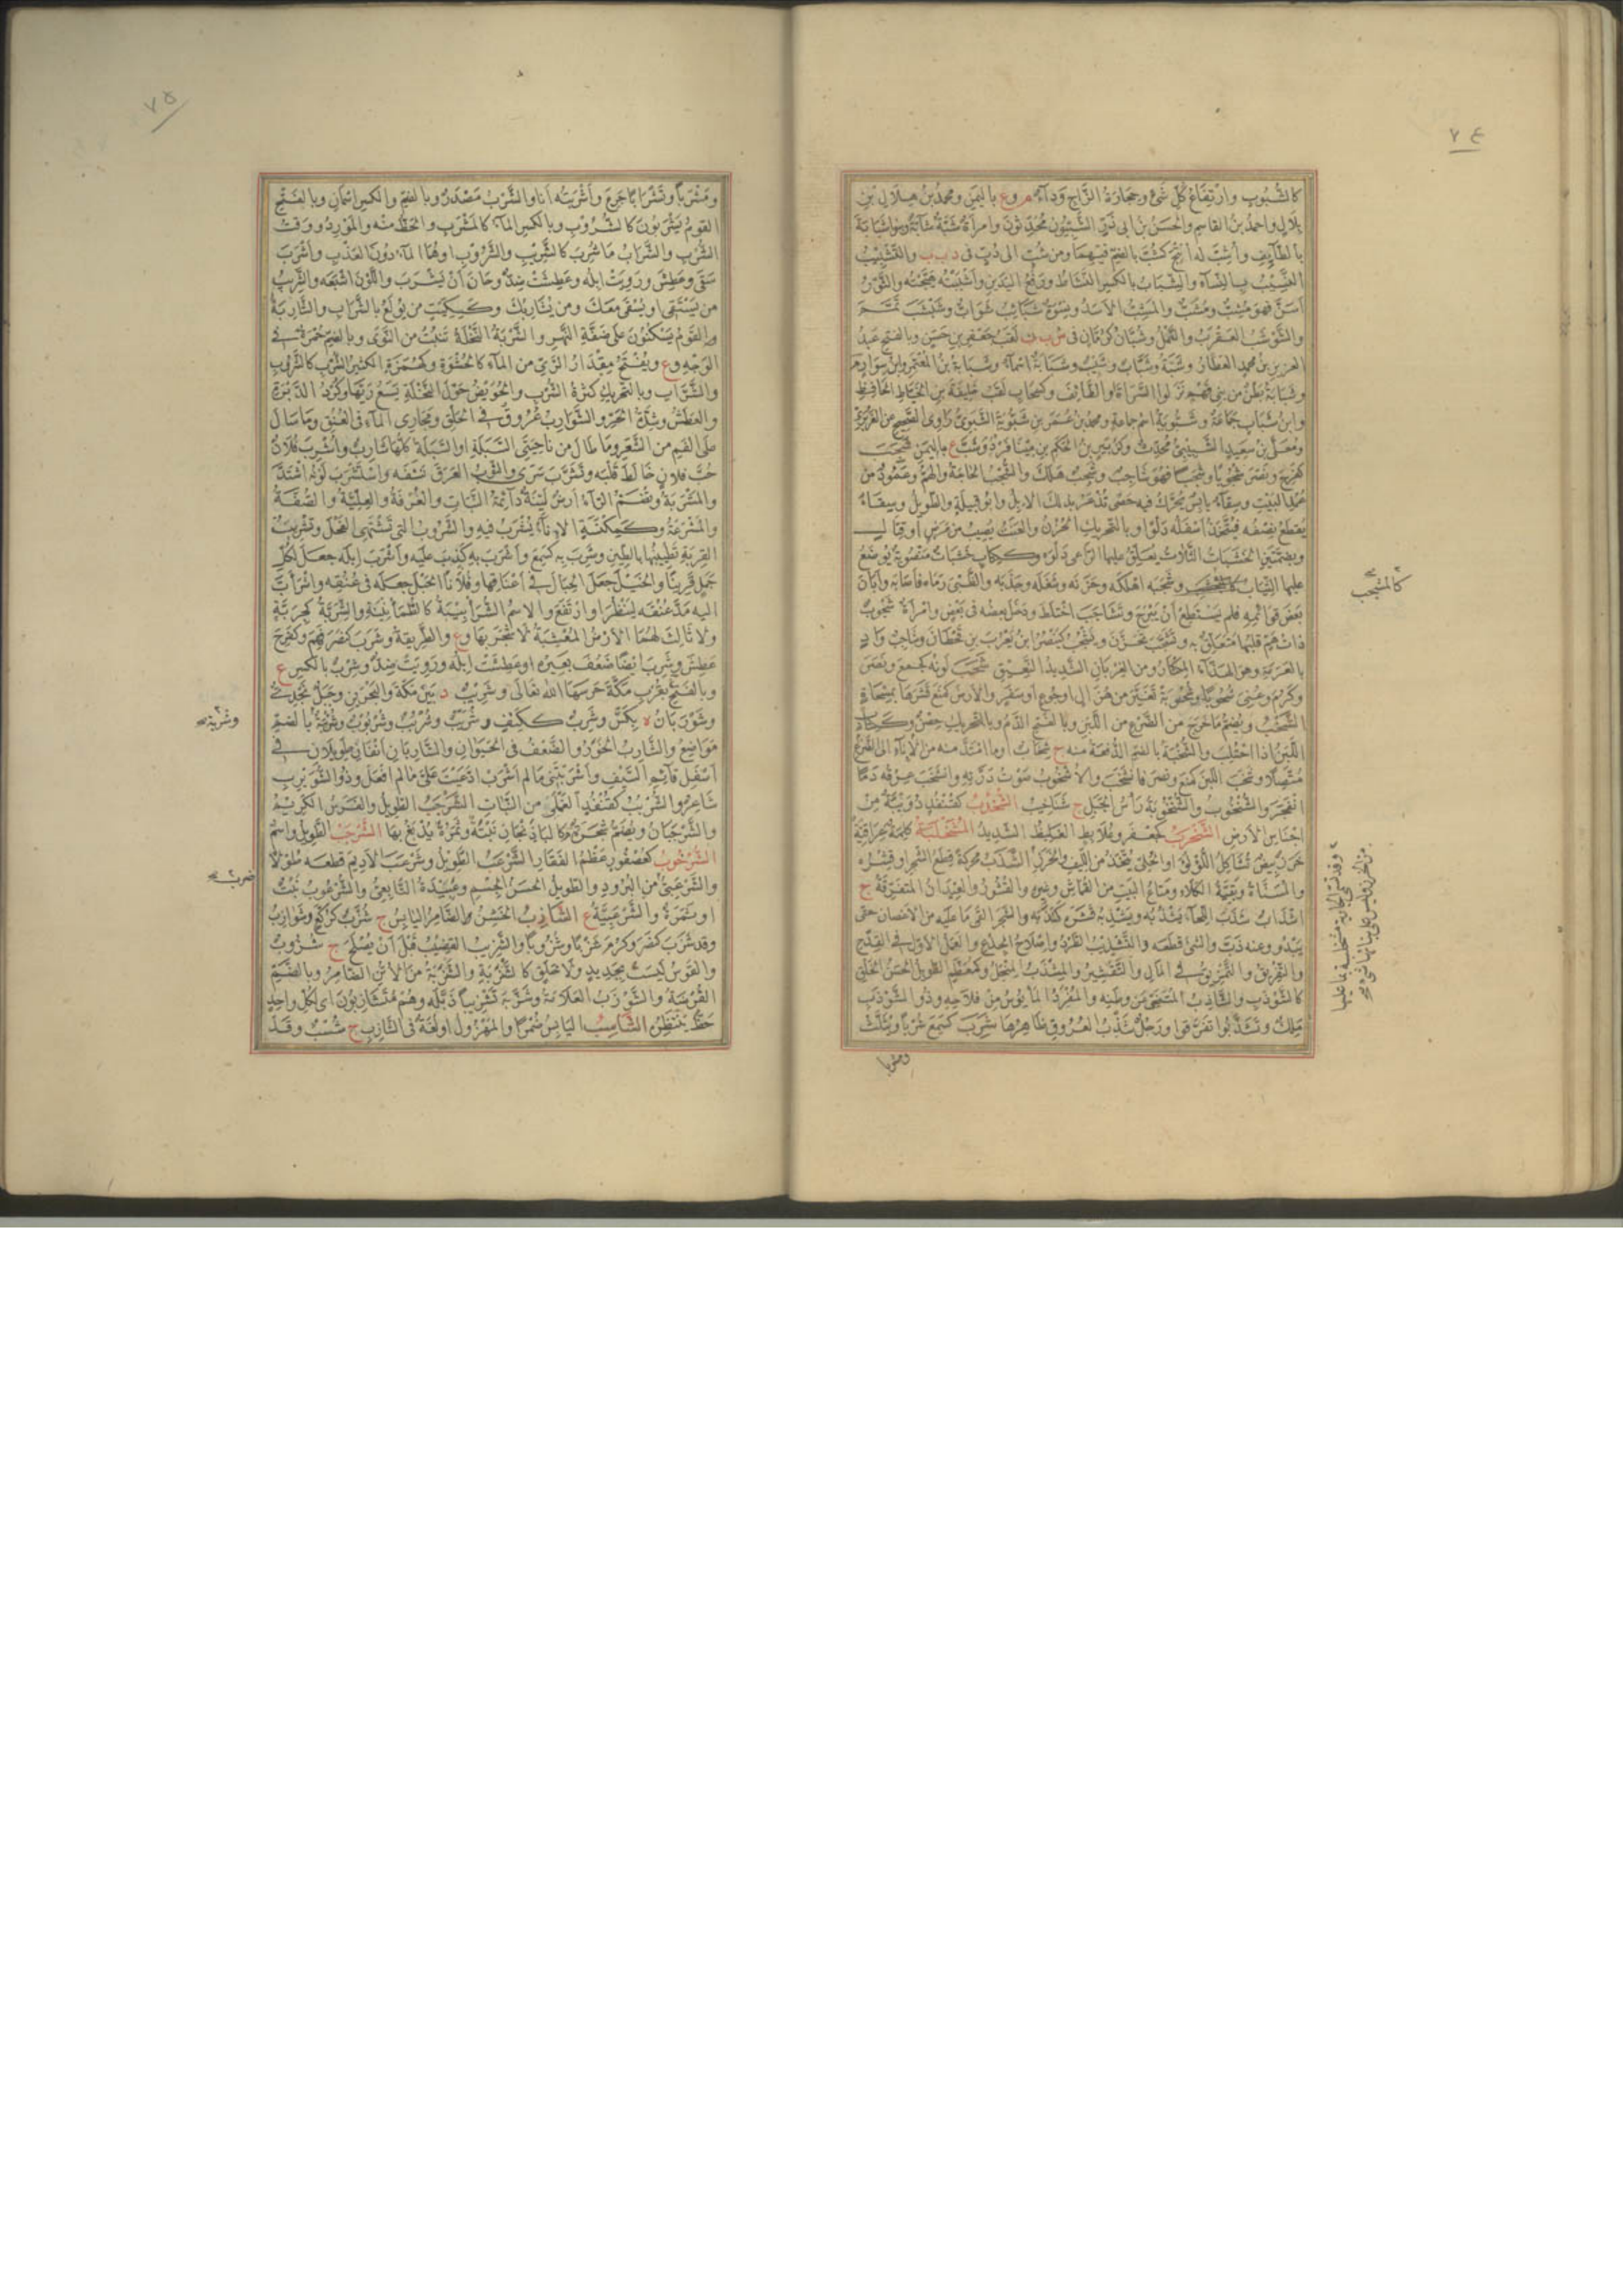 ٧٤
كالشُّبُوبِ وارْتِفَاعُ كُلِّ شَئٍ وحِجَارَةُ الزَّاجِ وَدَآءٌ م وع باليَمَنِ ومحمدُ بنُ هِلَالِ بنِ
بِلَالٍ واحمدُ بنُ القاسمِ والحَسَنُ بنُ ابى ذَرٍّ الشَّبِّيُّونَ مُحَدِّثُونَ وامرأةٌ شَبَّةٌ شَابَّةٌ
بالطَّائِفِ وأُشِبَّ له أُتِيحَ كَشُبَّ بالضم فيهما ومن شُبَّ الى دُبَّ فى د ب ب والتَّشْبِيبُ
النَّسِيبُ بالنِّسَآءِ والشِّبَابُ بالكسر النَّشَاطُ ورَفْعُ اليَدَيْنِ وأَشْبَبْتُه هَيَّجْتُه والثَّوْرُ
أسَنَّ فهو مُشِبٌّ ومُشَبٌّ والمُشِبُّ الأسَدُ ونِسْوَةٌ شَبَائِبُ شَوَابُّ وشَبْشَبَ تَمَّمَ
والشَّوْشَبُ العَقْرَبُ والقَمْلُ وشَبَّانُ كَرُمَّانٍ فى ش ب ن لَقَبُ جَعْفَرِ بنِ حَسَنٍ وبالفتح عبدُ
العزيزِ بنُ محمدٍ العَطَّارُ وشَبَّةُ وشَبَّابٌ وشَبِيبٌ وشَبَابَةُ أسْمَآءٌ وشَبَابَةُ بنُ المُعْتَمِرِ وابنُ سَوَّارٍ م
وشَبَابَةُ بَطْنٌ من بَنِى فَهْمٍ نَزَلُوا السَّرَاةَ او الطَّائِفَ وكسَحَابٍ لَقَبُ خَلِيفَةَ بنِ الخَيَّاطِ الحافِظِ
وابنُ شَبَابٍ جَمَاعَةٌ وشَبُّويَةُ اسْمُ جماعةٍ ومحمدُ بنُ عُمَرَ بنِ شَبُّويَةَ الشَّبُّوىُّ رَاوِى الصحيحِ عن الفِرَبْرِىِّ
ومُعَلَّى بنُ سَعِيدٍ الشَّبِيبِىُّ مُحَدِّثٌ وكَزُبَيْرٍ بنُ الحَكَمِ بنِ مِينَا فَرْدٌ وشَبَّ ع باليمن شَجَبَ
كَفَرِحَ ونَصَرَ شُجُوبًا وشَجَبًا فهو شَاجِبٌ وشَجِبٌ هَلَكَ والشَّجْبُ الحَاجَةُ والهَمُّ وعَمُودٌ من
عُمُدِ البَيْتِ وسِقَآءٌ يابِسٌ يُحَرَّكُ فيه حَصًى تُذْعَرُ بذلك الإبِلُ وابو قَبِيلَةٍ والطَّوِيلُ وسِقَاءٌ
يُقْطَعُ نِصْفُه فيُتَّخَذُ أسْفَلُه دَلْوًا وبالتحريك الحُزْنُ والعَنَتُ يُصِيبُ من مَرَضٍ أو قِتَالٍ
وبضمَّتينِ الخَشَبَاتُ الثَّلَاثُ يُعَلِّقُ عليها الرَّاعى دَلْوَه وككِتَابٍ خَشَبَاتٌ مَنْصُوبَةٌ تُوضَعُ
عليها الثِّيَابُ وشَجَبَه أهْلَكَه وحَزَنَه وشَغَلَه وجَذَبَه والظَّبْىَ رَمَاه فأصَابَه وأبَانَ
بَعْضَ قَوَائِمِه فلم يَسْتَطِعْ أنْ يَبْرَحَ وتَشَاجَبَ اخْتَلَطَ ودَخَلَ بعضُه فى بَعْضٍ وامْرَأةٌ شَجُوبٌ
ذاتُ هَمٍّ قلبُها مُتَعَلِّقٌ به وتَشَجَّبَ تَحَزَّنَ ويَشْجُبُ كيَنْصُرُ ابنُ يَعْرُبَ بنِ قَحْطَانَ وشَاجِبٌ وَادٍ
بالعَرَمَةِ وهو الهَذَّاءُ المِكْثَارُ ومن الغِرْبَانِ الشَّدِيدُ النَّعِيقِ شَحَبَ لَوْنُه كجَمَعَ ونَصَرَ
وكَرُمَ وعُنِىَ شُحُوبًا وشُحُوبَةً تَغَيَّرَ من هُزَالٍ او جُوعٍ او سَفَرٍ والأرضَ كمَنَعَ قَشَرَهَا بمِسْحَاةٍ
الشَّخْبُ ويُضَمُّ مَا خَرَجَ من الضَّرْعِ من اللَّبَنِ وبالفتح الدَّمُ وبالتحريك حِصْنٌ وككِتَابٍ
اللَّبَنُ اذا احْتُلِبَ والشُّخْبَةُ بالضم الدُّفْعَةُ منه ج شِخَابٌ او ما امْتَدَّ منه من الإنَاءِ الى الضَّرْعِ
مُتَّصِلًا وشَخَبَ اللَّبَنُ كمَنَعَ ونَصَرَ فانْشَخَبَ والأُشْخُوبُ صَوْتُ دِرَّتِهِ وانْشَخَبَ عِرْقُه دَمًا
انْفَجَرَ والشُّنْخُوبُ والشُّنْخُوبَةُ رَأْسُ الجَبَلِ ج شَنَاخِيبُ الشُّخْدُبُ كقُنْفُذٍ دُوَيْبَّةٌ مِنْ
أحْنَاشِ الأرْضِ الشَّخْرَبُ كجَعْفَرٍ وعُلَابِطٍ الغَلِيظُ الشَّدِيدُ المَشْخَلَبَةُ كَلِمَةٌ عِرَاقِيَّةٌ
خَرَزٌ بِيضٌ تُشَاكِلُ اللُّؤْلُؤَ او الحُلِىُّ يُتَّخَذُ من اللِّيفِ والخَرَزِ الشَّذَبُ محركةً قِطَعُ الشَّجَرِ او قِشْرُه
والمُسَنَّاةُ وبَقِيَّةُ الكَلَاءِ ومَتَاعُ البَيْتِ من القُمَاشِ وغيرِه والقُشُورُ والعِيدَانُ المتفرِّقةُ ج
أشْذَابٌ شَذَبَ اللِّحَآءَ يَشْذُبُه ويَشْذِبُه قَشَرَه كشَذَّبَه والشَّجَرَ ألْقَى مَا عَلَيْه من الأغْصَانِ حتى
يَبْدُوَ وعنه ذَبَّ والشَّئَ قَطَعَه والتَّشْذِيبُ الطَّرْدُ وإصْلَاحُ الجِذْعِ والعَمَلُ الأوَّلُ فى القِدْحِ
والتَّفْرِيقُ والتَّمْزِيقُ فى المَالِ والتَّقْشِيرُ والمِشْذَبُ المِنْجَلُ وكمُعَظَّمٍ الطَّوِيلُ الحَسَنُ الخَلْقِ
كالشَّوْذَبِ والشَّاذِبُ المُتَنَحِّى عن وَطَنِه والمُفْرَدُ المَأْيُوسُ مِنْ فَلَاحِهِ وذُو الشَّوْذَبِ
مَلِكٌ وتَشَذَّبُوا تَفَرَّقُوا ورَجُلٌ شَذِبُ العُرُوقِ ظَاهِرُهَا شَرِبَ كسَمِعَ شَرْبًا ويُثَلَّثُ
ومشربا
كالمشجب
٧٥
ومَشْرَبًا وتَشْرَابًا جَرَعَ وأَشْرَبْتُه أنا والشَّرْبُ مَصْدَرٌ وبالضم والكسر اسْمَانِ وبالفَتْحِ
القومُ يَشْرَبُونَ كالشُّرُوبِ وبالكسر المَآءُ كالمَشْرَبِ والحَظُّ منه والمَوْرِدُ ووَقْتُ
الشُّرْبِ والشَّرَابُ مَا شُرِبَ كالشَّرِيبِ والشَّرُوبِ او هُمَا المَآءُ دُونَ العَذْبِ وأَشْرَبَ
سَقَى وعَطِشَ ورَوِيَتْ إبِلُه وعَطِشَتْ ضِدٌّ وحَانَ أنْ يَشْرَبَ واللَّوْنَ أشْبَعَه والشَّرِيبُ
من يَسْتَقِى او يُسْقَى مَعَكَ ومن يُشَارِبُكَ وكسِكِّيتٍ من يُولَعُ بالشَّرَابِ والشَّارِبَةُ
القَوْمُ يَسْكُنُونَ على ضَفَّةِ النَّهرِ والشَّرْبَةُ النَّخْلَةُ تَنْبُتُ من النَّوَى وبالضم حُمْرَةٌ فى
الوَجْهِ وع ويُفْتَحُ ومِقْدَارُ الرِّىِّ من المَآءِ كالحُسْوَةِ وكهُمَزَةٍ الكثيرُ الشُّرْبِ كالشَّرُوبِ
والشَّرَّابِ وبالتحريك كثرةُ الشُّرْبِ والحُوَيْضُ حَوْلَ النَّخْلَةِ يَسَعُ رِيَّهَا وكُرْدُ الدَّبْرَةِ
والعَطَشُ وشِدَّةُ الحَرِّ والشَّوَارِبُ عُرُوقٌ فى الحَلْقِ ومَجَارِى المَآءِ فى العُنُقِ ومَا سَالَ
على الفَمِ من الشَّعَرِ ومَا طَالَ من نَاحِيَتَىِ السَّبَلَةِ او السَّبَلَةُ كُلُّهَا شَارِبٌ وأُشْرِبَ فُلَانٌ
حُبَّ فلانٍ خَالَطَ قَلْبَه وتَشَرَّبَ سَرَى والثَّوْبُ العَرَقَ نَشِفَه واسْتَشْرَبَ لَوْنُه اشْتَدَّ
والمَشْرَبَةُ وتُضَمُّ الرَّآءُ أرضٌ لَيِّنَةٌ دَائِمَةُ النَّبَاتِ والغُرْفَةُ والعِلِّيَّةُ والصُّفَّةُ
والمَشْرَعَةُ وكمِكْنَسَةٍ الإنَآءُ يُشْرَبُ فيه والشَّرُوبُ التى تَشْتَهِى الفَحْلَ وتَشْرِيبُ
القِرْبَةِ تَطْيِيبُهَا بالطِّينِ وشَرِبَ به كسَمِعَ وأَشْرَبَ به كَذَبَ عليه وأَشْرَبَ إبِلَه جَعَلَ لكُلِّ
جَمَلٍ قَرِينًا والخَيْلَ جَعَلَ الحِبَالَ فى أعْنَاقِهَا وفُلَانًا الحَبْلَ جَعَلَه فى عُنُقِه واشْرَأَبَّ
اليه مَدَّ عُنُقَه ليَنْظُرَ او ارْتَفَعَ والاسمُ الشُّرَأْبِيبَةُ كالطُّمَأْنِينَةِ والشَّرَبَّةُ كجَرَبَّةٍ
ولا ثَالِثَ لهُمَا الأرْضُ المُعْشِبَةُ لَا شَجَرَ بها وع والطَّرِيقَةُ وشَرَبَ كنَصَرَ فَهِمَ وكفَرِحَ
عَطِشَ وشَرِبَ ايضًا ضَعُفَ بَعِيرُه او عَطِشَتْ إبِلُه ورَوِيَتْ ضِدٌّ وشِرْبٌ بالكسر ع
وبالفتح ع بقُرْبِ مَكَّةَ حَرَسَهَا اللهُ تعَالَى وشَرِيبٌ د بَيْنَ مَكَّةَ والبَحْرَيْنِ وجَبَلٌ نَجْدِىٌّ
وشَوْرَبَانُ ة بِكَسَّ وشَرِبٌ ككَتِفٍ وشُرَيْبٌ وشُرْبُبٌ وشُرْبُوبٌ وشُرْبَةٌ بالضم
مَوَاضِعُ والشَّارِبُ الخَوَرُ والضَّعْفُ فى الحَيَوَانِ والشَّارِبَانِ أنْفَانِ طَوِيلَانِ فى
أسْفَلِ قَائِمِ السَّيْفِ وأَشْرَبْتَنِى مَا لم أَشْرَبْ ادَّعَيْتَ عَلَىَّ مَا لم أفْعَلْ وذُو الشُّوَيْرِبِ
شَاعِرٌ والشُّرْبُبُ كقُنْفُذٍ الغَمْلَى من النَّبَاتِ الشَّرْجَبُ الطَّوِيلُ والفَرَسُ الكَرِيمُ
والشَّرْجَبَانُ ويُضَمُّ شَجَرَةٌ كالبَاذِنْجَانِ نِبْتَةً وثَمَرَةً يُدْبَغُ بها الشَّرْحَبُ الطَّوِيلُ واسْمٌ
الشُّرْخُوبُ كعُصْفُورٍ عَظْمُ الفَقَارِ الشَّرْعَبُ الطَّوِيلُ وشَرْعَبَ الأدِيمَ قَطَعَه طُولًا
والشَّرْعَبِىُّ من البُرُودِ والطَّوِيلُ الحَسَنُ الجِسْمِ وعُبَيْدَةُ التَّابِعِىُّ والشُّرْعُوبُ نَبْتٌ
او ثَمَرَةٌ والشَّرْعَبِيَّةُ ع الشَّازِبُ الخَشِنُ والضَّامِرُ اليَابِسُ ج شُزَّبٌ كرُكَّعٍ وشَوَازِبُ
وقد شَزَبَ كنَصَرَ وكَرُمَ شَزَبًا وشُزُوبًا والشَّزِيبُ القَضِيبُ قَبْلَ أنْ يُصْلَحَ ج شُزُوبٌ
والقَوْسُ لَيْسَتْ بجَدِيدٍ ولَا خَلَقٍ كالشَّزْبَةِ والشَّزْبَةُ من الأُتُنِ الضَّامِرُ وبالضَّمِّ
الفُرْصَةُ والشَّوْزَبُ العَلَامَةُ وشَزَّبَه تَشْزِيبًا ذَبَّلَه وهُمْ مُتَشَازِبُونَ اى لكُلِّ واحِدٍ
حَظٌّ يَنْتَظِرُ الشَّاسِبُ اليَابِسُ ضُمْرًا والمَهْزُولُ او لُغَةٌ فى الشَّازِبِ ج شُسُبٌ وقَدْ
وشربة
ضرب